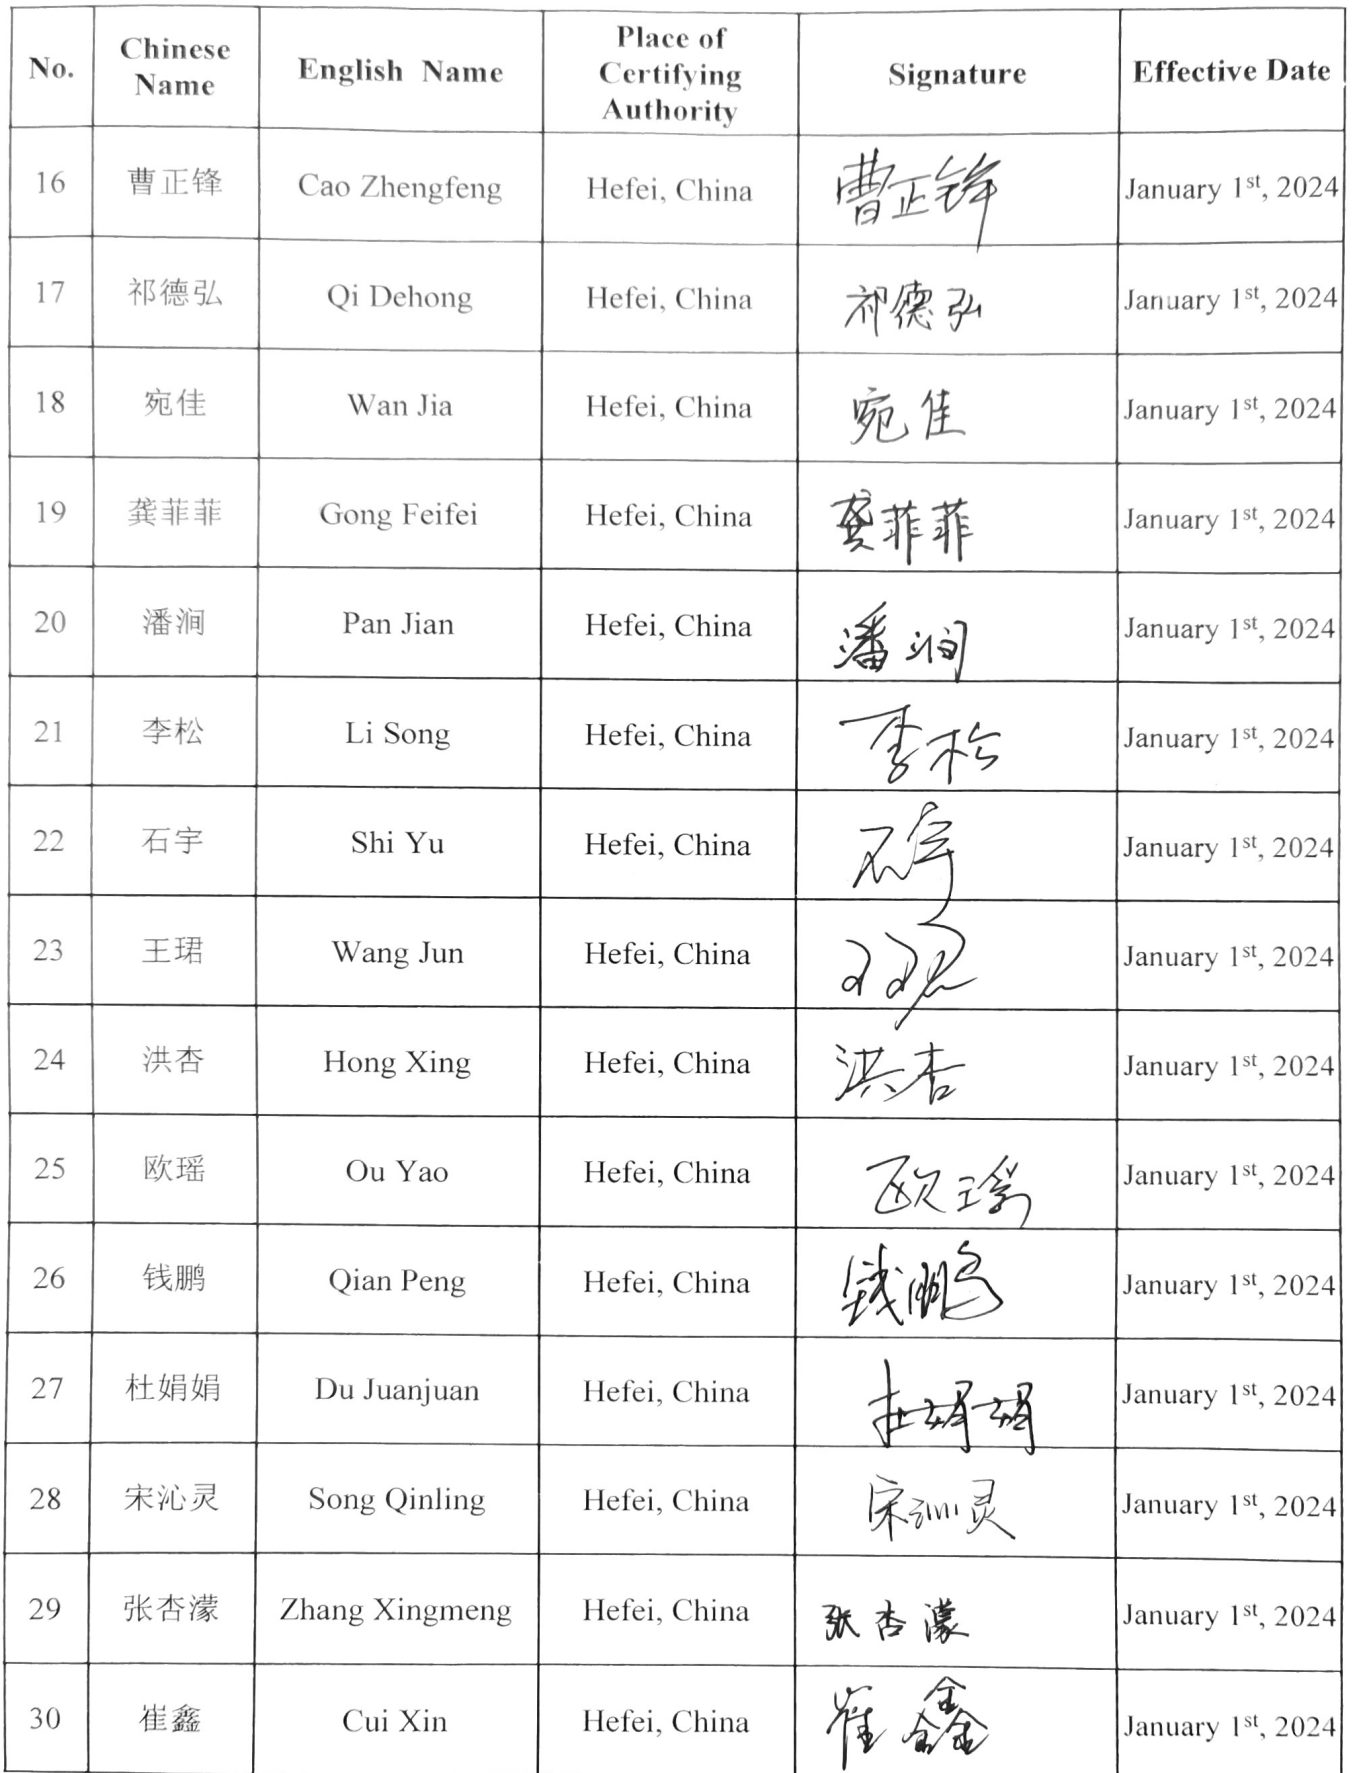 No. Chinese Name English Name Place of Certifying Authority Signature Effective Date
16 曹正锋 Cao Zhengfeng Hefei, China 曹正锋 January 1st, 2024
17 祁德弘 Qi Dehong Hefei, China 祁德弘 January 1st, 2024
18 宛佳 Wan Jia Hefei, China 宛佳 January 1st, 2024
19 龚菲菲 Gong Feifei Hefei, China 龚菲菲 January 1st, 2024
20 潘涧 Pan Jian Hefei, China 潘涧 January 1st, 2024
21 李松 Li Song Hefei, China 李松 January 1st, 2024
22 石宇 Shi Yu Hefei, China 石宇 January 1st, 2024
23 王珺 Wang Jun Hefei, China 王珺 January 1st, 2024
24 洪杏 Hong Xing Hefei, China 洪杏 January 1st, 2024
25 欧瑶 Ou Yao Hefei, China 欧瑶 January 1st, 2024
26 钱鹏 Qian Peng Hefei, China 钱鹏 January 1st, 2024
27 杜娟娟 Du Juanjuan Hefei, China 杜娟娟 January 1st, 2024
28 宋沁灵 Song Qinling Hefei, China 宋沁灵 January 1st, 2024
29 张杏濛 Zhang Xingmeng Hefei, China 张杏濛 January 1st, 2024
30 崔鑫 Cui Xin Hefei, China 崔鑫 January 1st, 2024